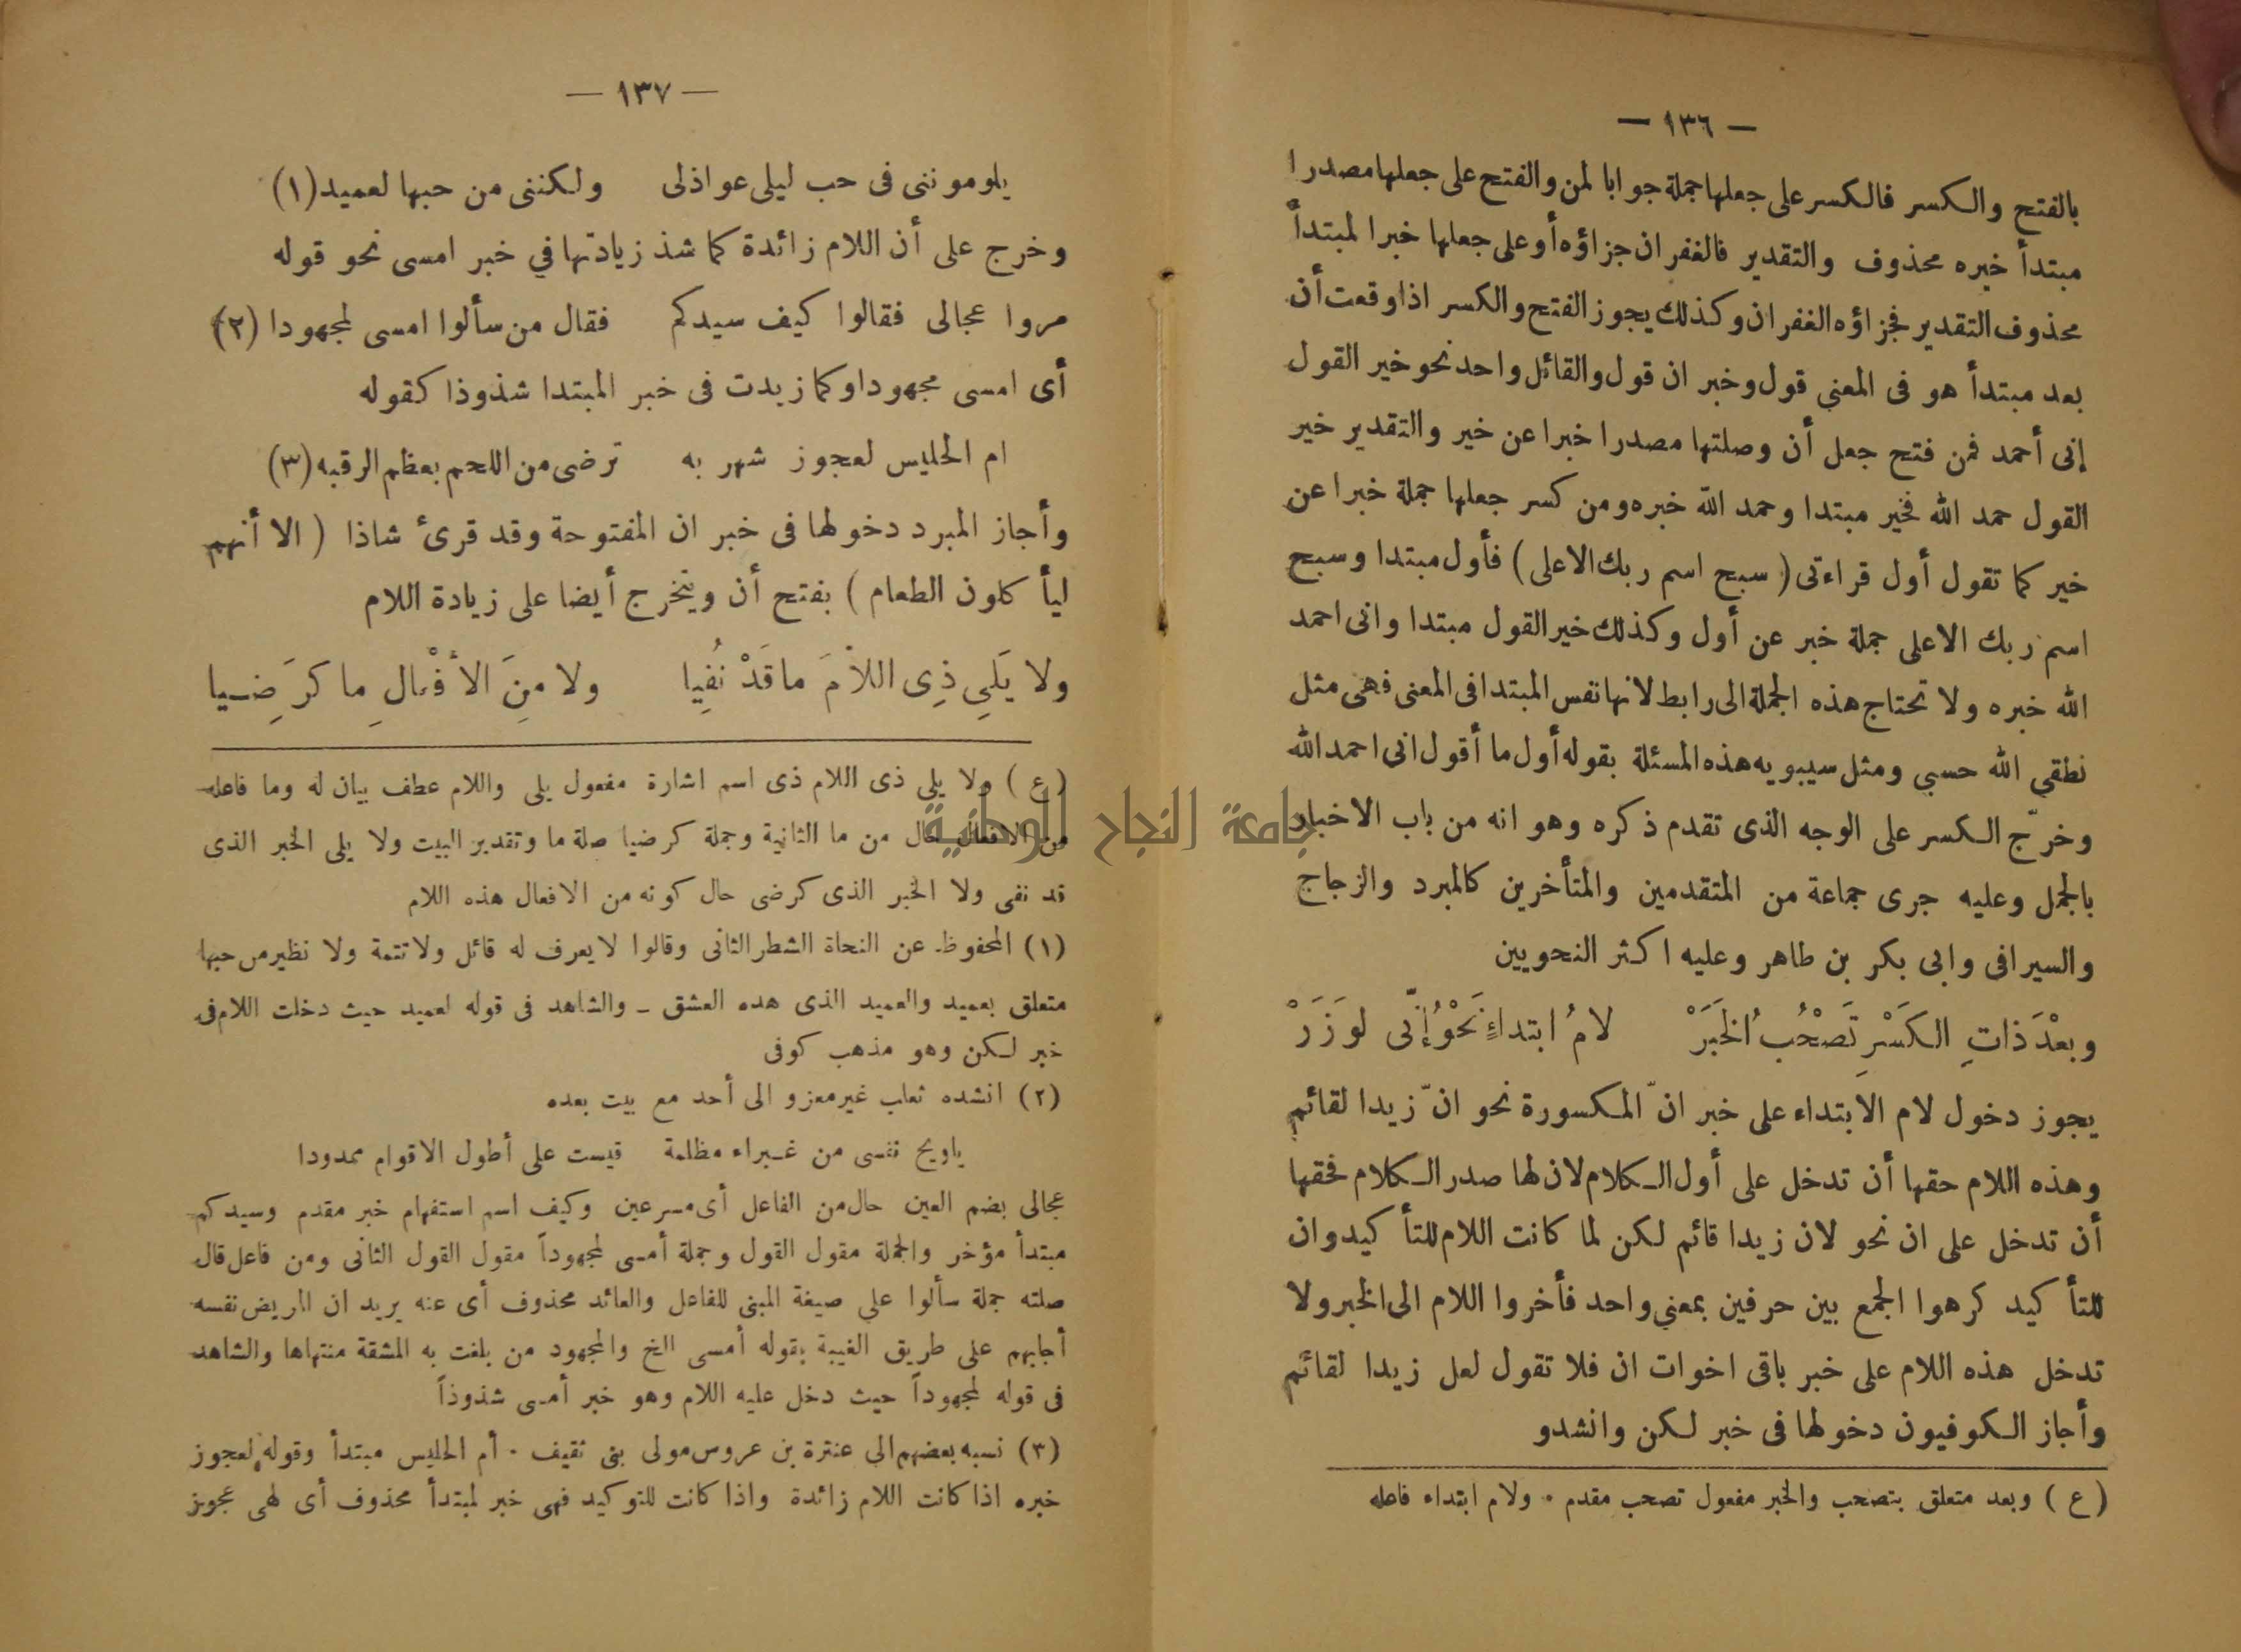 — ١٣٦ —
بالفتح والكسر فالكسر على جعلها جملة جوابا لمن والفتح على جعلها مصدرا
مبتدأ خبره محذوف والتقدير فالغفران جزاؤه أو على جعلها خبرا لمبتدأ
محذوف التقدير فجزاؤه الغفران وكذلك يجوز الفتح والكسر اذا وقعت أن
بعد مبتدأ هو فى المعنى قول وخبر ان قول والقائل واحد نحو خير القول
إنى أحمد فمن فتح جعل أن وصلتها مصدرا خبرا عن خير والتقدير خير
القول حمد الله فخير مبتدا وحمد الله خبره ومن كسر جعلها جملة خبرا عن
خير كما تقول أول قراءتى (سبح اسم ربك الاعلى) فأول مبتدا وسبح
اسم ربك الاعلى جملة خبر عن أول وكذلك خير القول مبتدا وانى احمد
الله خبره ولا تحتاج هذه الجملة الى رابط لانها نفس المبتدا فى المعنى فهى مثل
نطقي الله حسبي ومثل سيبويه هذه المسئلة بقوله أول ما أقول انى احمد الله
وخرّج الكسر على الوجه الذى تقدم ذكره وهو انه من باب الاخبار
بالجمل وعليه جرى جماعة من المتقدمين والمتأخرين كالمبرد والزجاج
والسيرافى وابى بكر بن طاهر وعليه اكثر النحويين
وبعْدَ ذاتِ الكَسْرِ تَصْحُبُ الخَبَرْ لامُ ابتداءٍ نَحْوُ إنّى لوَزَرْ
يجوز دخول لام الابتداء على خبر انّ المكسورة نحو انّ زيدا لقائم
وهذه اللام حقها أن تدخل على أول الكلام لان لها صدر الكلام فحقها
أن تدخل على ان نحو لان زيدا قائم لكن لما كانت اللام للتأكيد وان
للتأكيد كرهوا الجمع بين حرفين بمعني واحد فأخروا اللام الى الخبر ولا
تدخل هذه اللام على خبر باقى اخوات ان فلا تقول لعل زيدا لقائم
وأجاز الكوفيون دخولها فى خبر لكن وانشدو
(ع) وبعد متعلق بتصحب والخبر مفعول تصحب مقدم . ولام ابتداء فاعله
— ١٣٧ —
يلوموننى فى حب ليلى عواذلى ولكننى من حبها لعميد (١)
وخرج على أن اللام زائدة كما شذ زيادتها في خبر امسى نحو قوله
مروا عجالى فقالوا كيف سيدكم فقال من سألوا امسى لمجهودا (٢)
أى امسى مجهودا وكما زيدت فى خبر المبتدا شذوذا كقوله
ام الحليس لعجوز شهر به ترضى من اللحم بعظم الرقبه (٣)
وأجاز المبرد دخولها فى خبر ان المفتوحة وقد قرئ شاذا ( الا أنهم
ليأ كلون الطعام ) بفتح أن ويتخرج أيضا على زيادة اللام
ولا يَلي ذِى اللاّمَ ما قَدْ نُفِيا ولا مِنَ الأفْعالِ ما كرَضِيا
(ع) ولا يلى ذى اللام ذى اسم اشارة مفعول يلى واللام عطف بيان له وما فاعله
من الافعال حال من ما الثانية وجملة كرضيا صلة ما وتقدير البيت ولا يلى الخبر الذى
قد نفى ولا الخبر الذى كرضى حال كونه من الافعال هذه اللام
(١) المحفوظ عن النحاة الشطر الثانى وقالوا لا يعرف له قائل ولا تتمة ولا نظير من حبها
متعلق بعميد والعميد الذى هده العشق ـ والشاهد فى قوله لعميد حيث دخلت اللام فى
خبر لكن وهو مذهب كوفى
(٢) انشده ثعلب غير معزو الى أحد مع بيت بعده
ياويح نفسى من غبراء مظلمة قيست على أطول الاقوام ممدودا
عجالى بضم العين حال من الفاعل أى مسرعين وكيف اسم استفهام خبر مقدم وسيدكم
مبتدأ مؤخر والجملة مقول القول وجملة أمسى لمجهوداً مقول القول الثانى ومن فاعل قال
صلته جملة سألوا على صيغة المبنى للفاعل والعائد محذوف أى عنه يريد ان المريض نفسه
أجابهم على طريق الغيبة بقوله أمسى الخ والمجهود من بلغت به المشقة منتهاها والشاهد
فى قوله لمجهوداً حيث دخل عليه اللام وهو خبر أمسى شذوذاً
(٣) نسبه بعضهم الى عنترة بن عروس مولى بنى ثقيف . أم الحليس مبتدأ وقوله لعجوز
خبره اذا كانت اللام زائدة واذا كانت للتوكيد فهى خبر لمبتدأ محذوف أى لهى عجوز
جامعة النجاح الوطنية